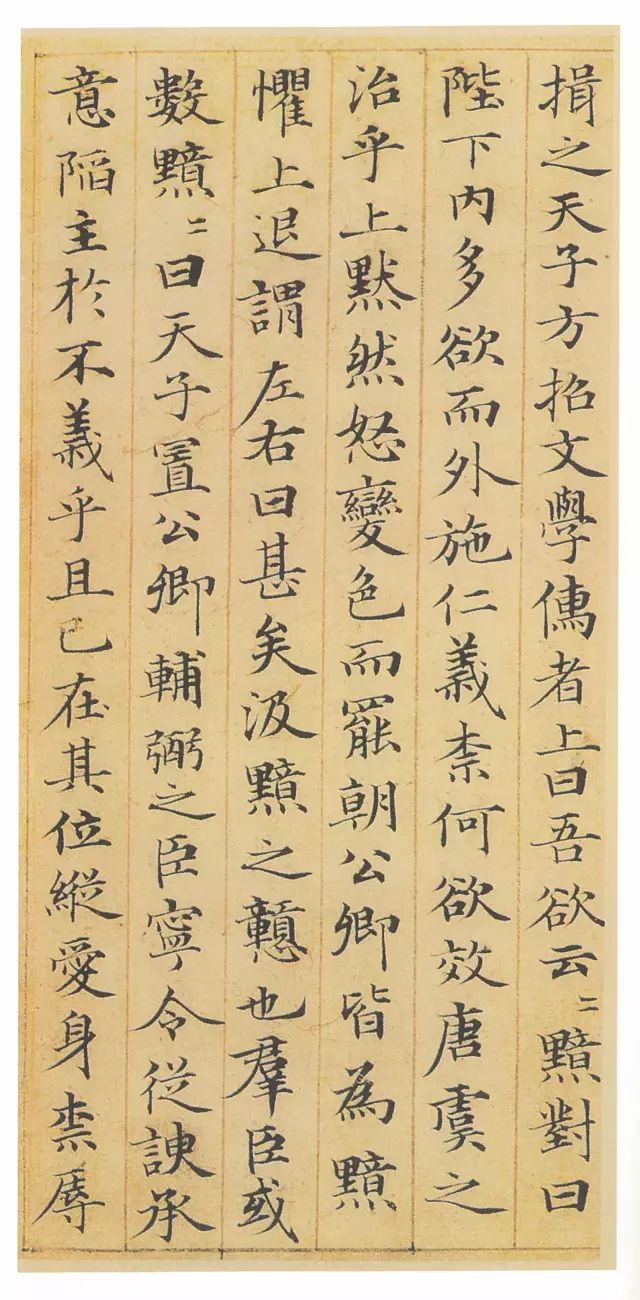 揖之天子方招文學儒者上曰吾欲云〻黯對曰
陛下內多欲而外施仁義柰何欲效唐虞之
治乎上黙然怒變色而罷朝公卿皆為黯
懼上退謂左右曰甚矣汲黯之戇也羣臣或
數黯〻曰天子置公卿輔弼之臣寧令從諛承
意陷主於不義乎且已在其位縱愛身柰辱